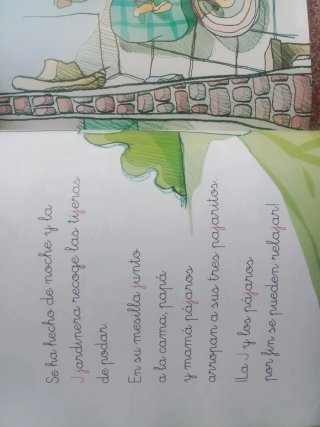 Se ha hecho de noche y la
Jardinera recoge las tijeras
de podar.
En su mesilla junto
a la cama, papá
y mamá pájaros
arropan a sus tres pajaritos.
¡La J y los pájaros
por fin se pueden relajar!